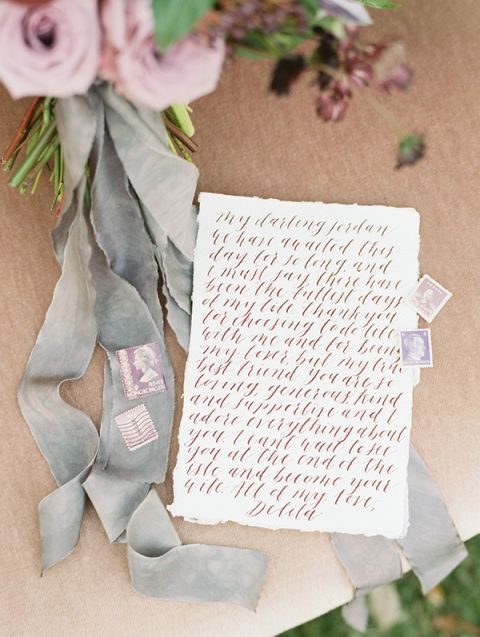 my darling jordan
we have awaited this
day for so long and
i must say these have
been the fullest days
of my life. Thank you
for choosing to do life
with me and for being
my lover, but my true
best friend. You are so
loving, generous, kind
and supportive and I
adore everything about
you. I can't wait to see
you at the end of the
isle and become your
wife. All of my love,
Delild
HONG KONG